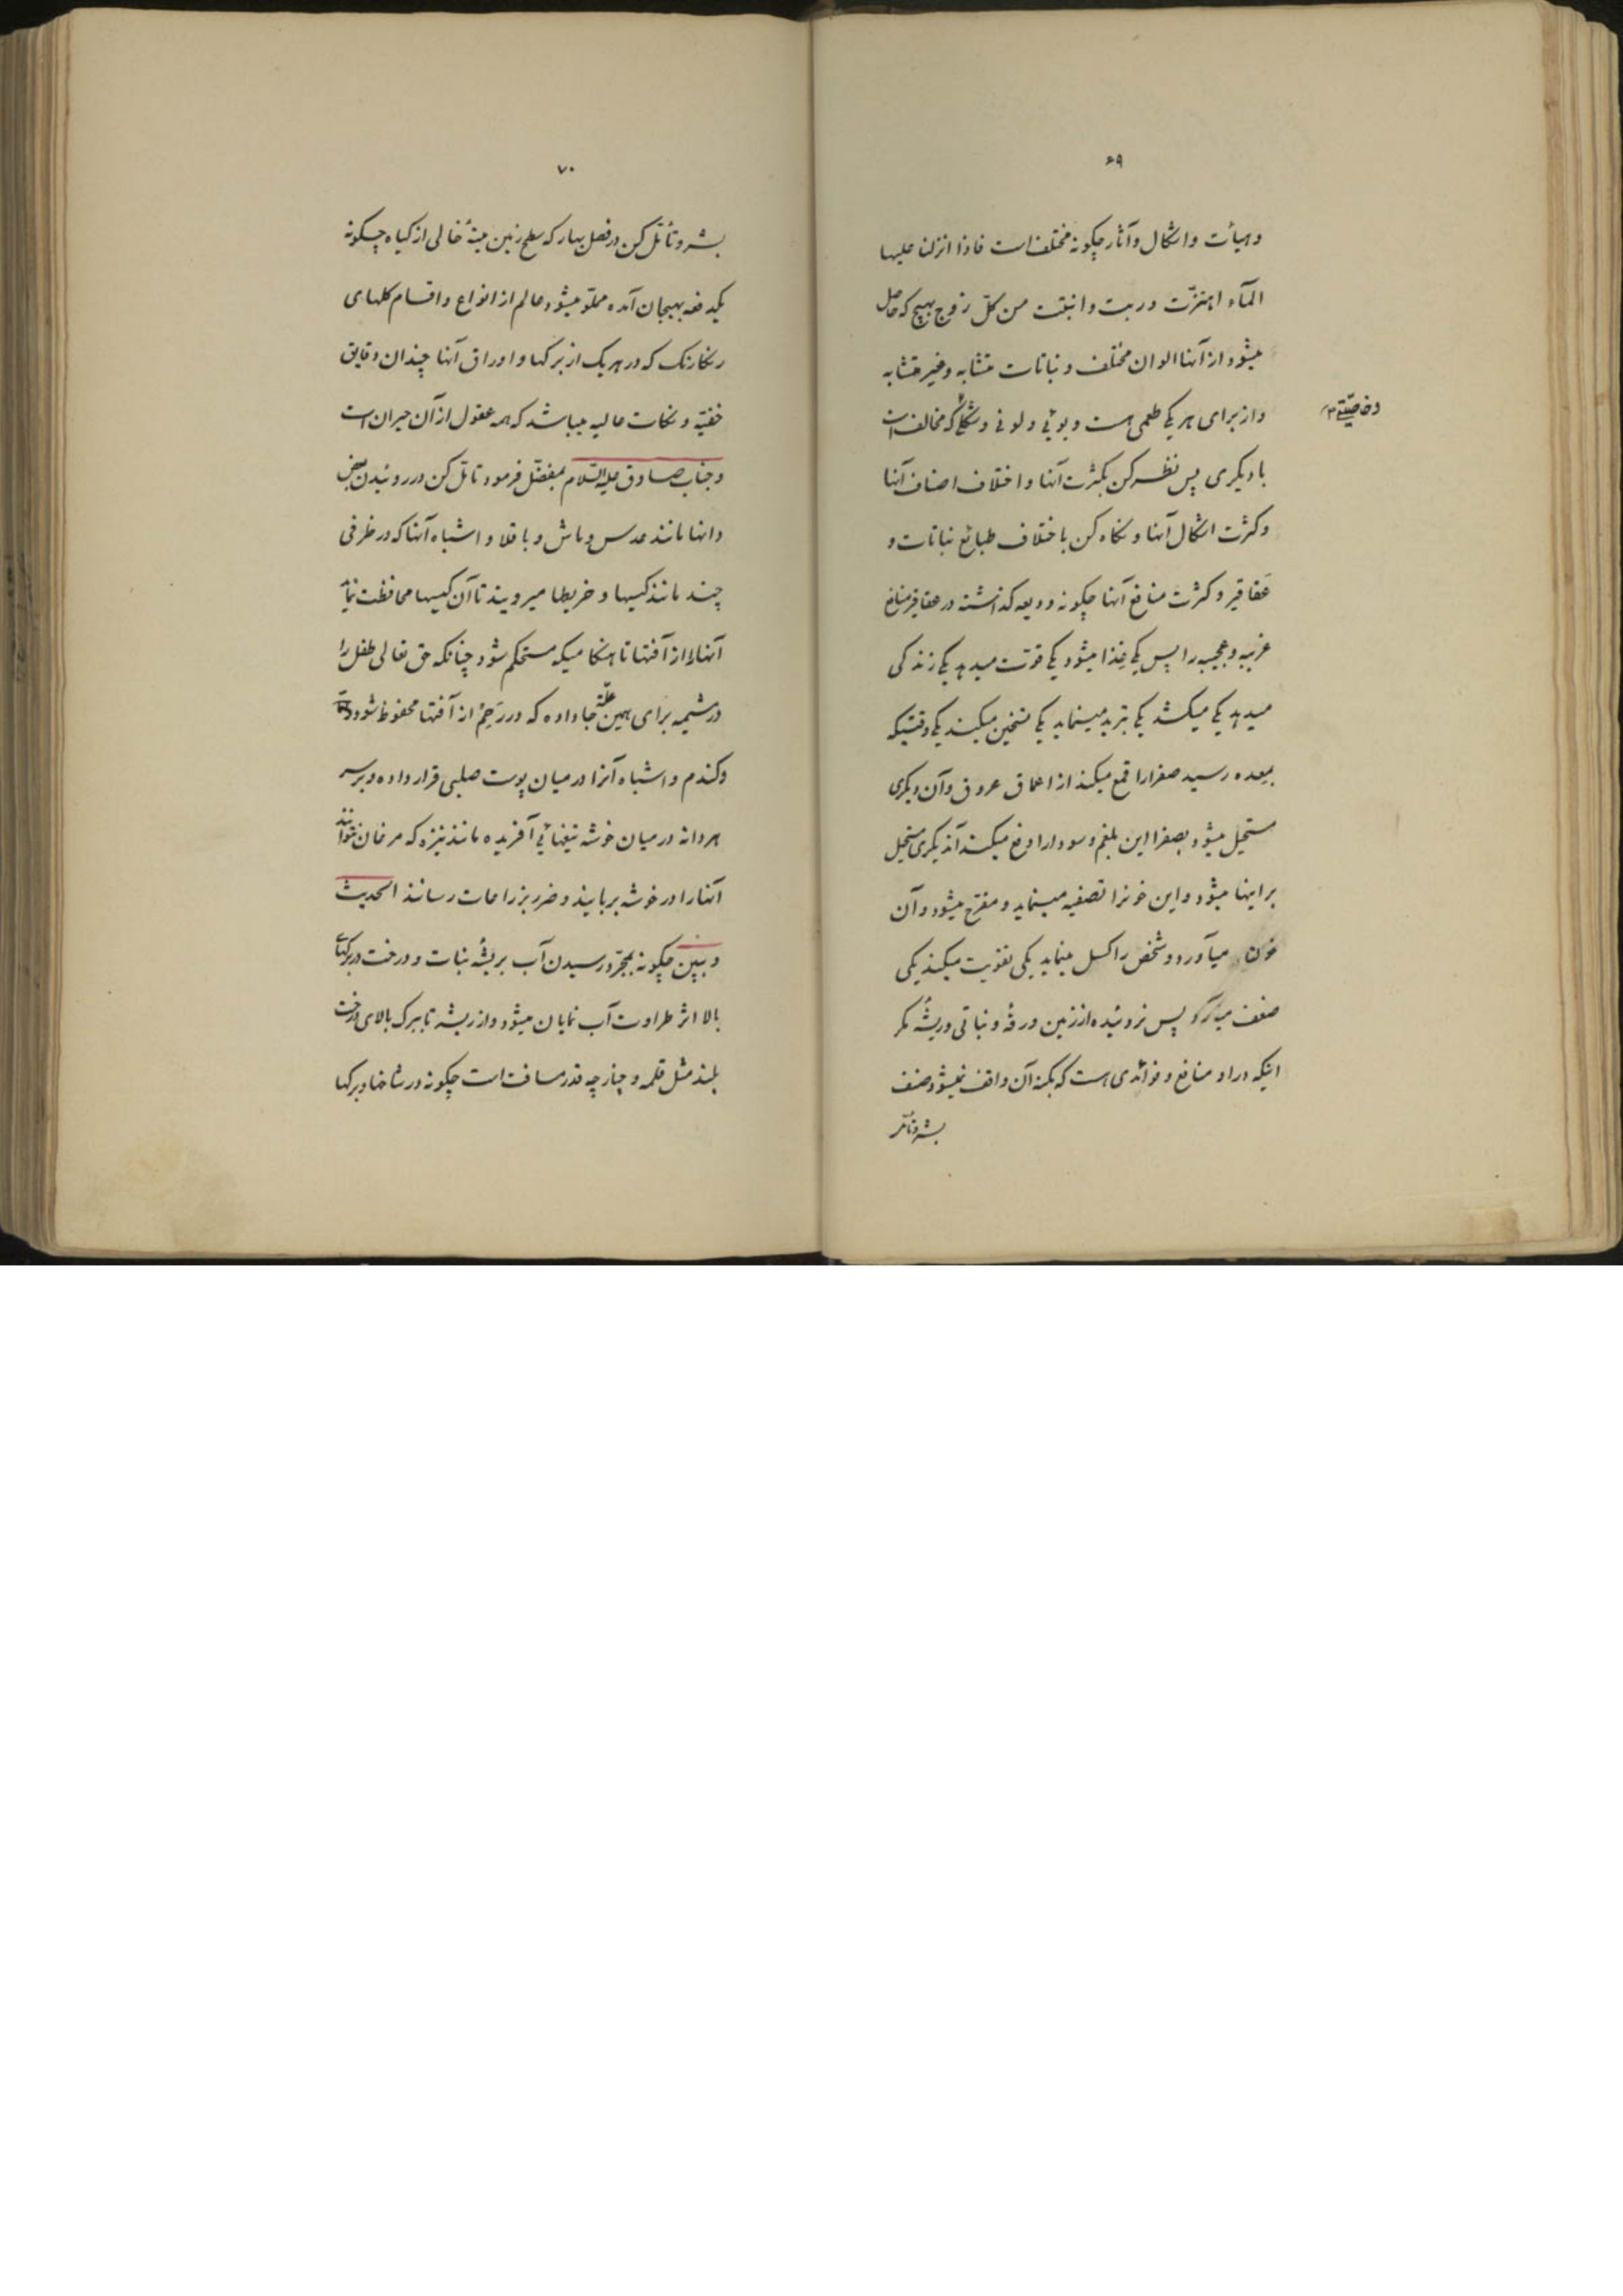 ۶۹
وهیأت واشکال وآثار چکونه مختلف است فاذا انزلنا علیها
المآء اهتزّت وربت وانبتت من کلّ زوج بهیج که حاصل
میشود از آنها الوان مختلف و نباتات متشابه وغیر متشابه
واز برای هر یکی طعمی است و بوئی و لونی و شکلی که مخالف است
وخاصیّتی
با دیکری پس نظر کن بکثرت آنها و اختلاف اصناف آنها
وکثرت اشکال آنها و نکاه کن باختلاف طبائع نباتات و
عَقاقیر وکثرت منافع آنها چکونه ودیعه کذاشته در عقاقیر منافع
غریبه وعجیبه را پس یکی غِذا میشود یکی قوّت میدهد یکی زندکی
میدهد یکی میکشد یکی تبرید مینماید یکی تسخین میکند یکی وقتیکه
بمعده رسید صفرا را قمع میکند از اعماق عروق وآن دیکری
مستحیل میشود بصفرا این بلغم و سودا را دفع میکند آندیکری مستحیل
براینها میشود و این خونرا تصفیه مینماید و مفرّح میشود وآن
میآورد و شخص را کسل مینماید یکی تقویت میکند یکی
ضعف میآورد پس نروئیده از زمین ورقهٔ و نباتی وریشهٔ مکر
اینکه در او منافع و فوائدی است که بکنه آن واقف نمیشود صنف
بشر وتأمّل
۷۰
بشر وتأمّل کن در فصل بهار که سطح زمین میتهٔ خالی از کیاه چکونه
یکدفعه بهیجان آمده مملوّ میشود عالم از انواع و اقسام کلهای
رنکارنک که در هر یک از برکها و اوراق آنها چندان دقایق
خفیّه و نکات عالیه میباشد که همه عقول از آن حیران است
وجناب صادق علیه السّلام بمفضّل فرمود تامّل کن در روئیدن بعض
دانها مانند عدس و ماش و باقلا و اشباه آنها که در ظرفی
چند مانند کیسها و خریطها میرویند تا آن کیسها محافظت نماید
آنها را از آفتها تا هنکامیکه مستحکم شود چنانکه حق تعالی طفل را
در مشیمه برای همین علّة جا داده که در رَحِم از آفتها محفوظ شود و
وکندم و اشباه آنرا در میان پوست صلبی قرار داده و بر سر
هر دانه در میان خوشه تیغهائی آفریده مانند نیزه که مرغان نتوانند
آنها را در خوشه بربایند و ضرر بزراعات رسانند الحدیث
و ببین چکونه بمجرّد رسیدن آب بریشهٔ نبات و درخت در برکهای
بالا اثر طراوت آب نمایان میشود و از ریشه تا ببرک بالای درخت
بلند مثل قلمه و چنار چه قدر مسافت است چکونه در شاخها و برکها